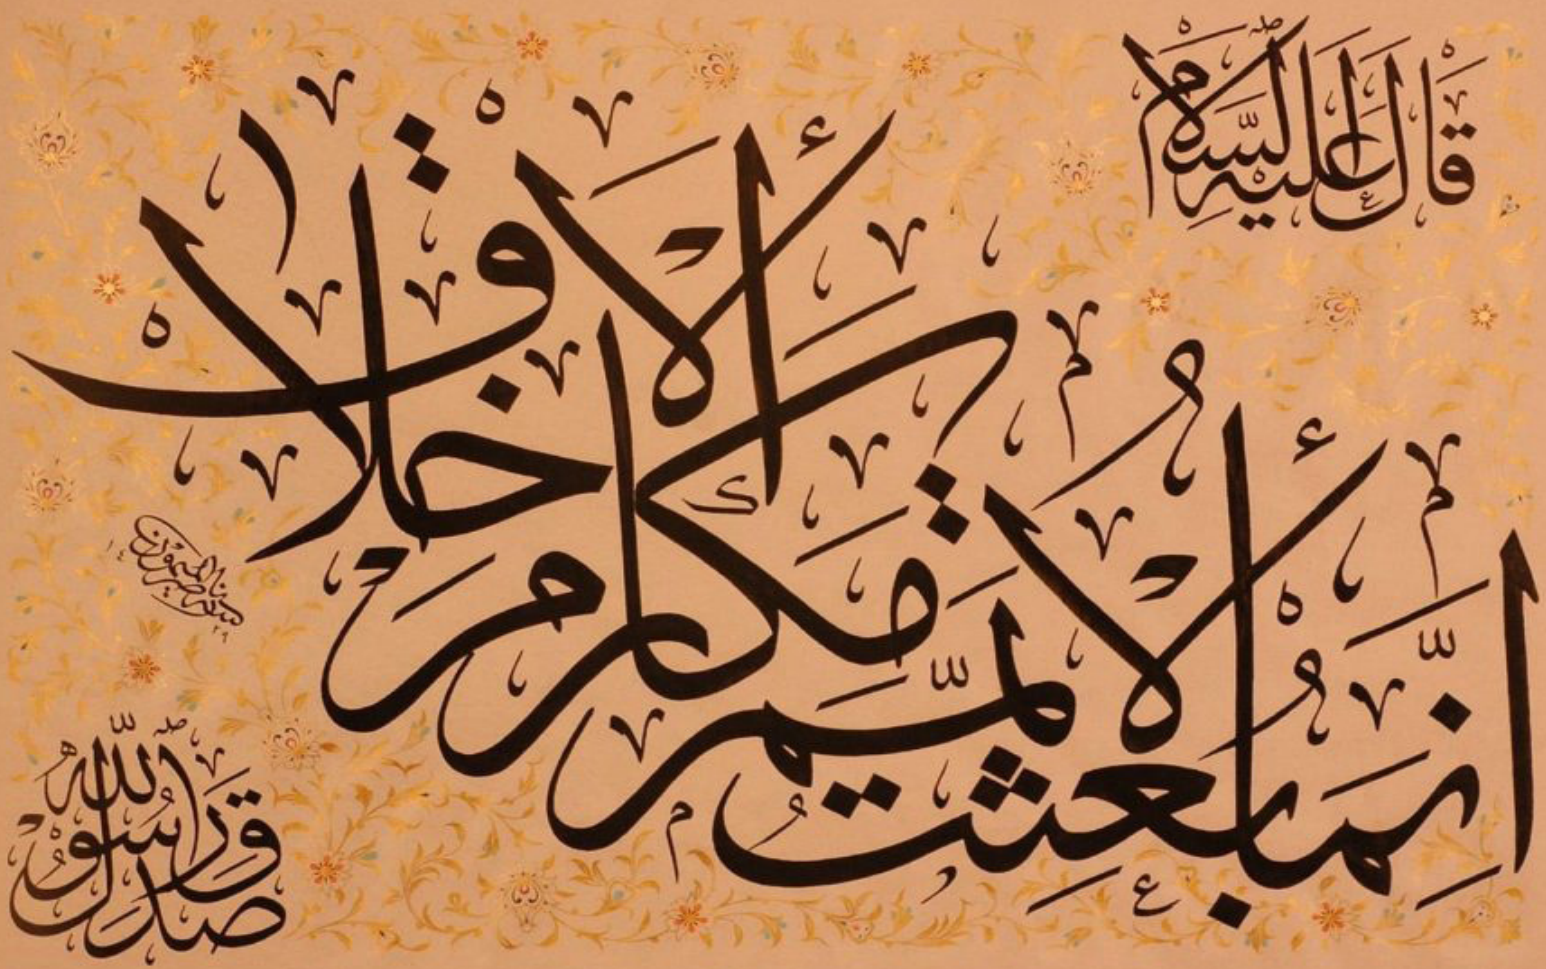 قَالَ عَلَيْهِ السَّلَامُ
إِنَّمَا بُعِثْتُ لِأُتَمِّمَ مَكَارِمَ الْأَخْلَاقِ
صَدَقَ رَسُولُ اللهِ